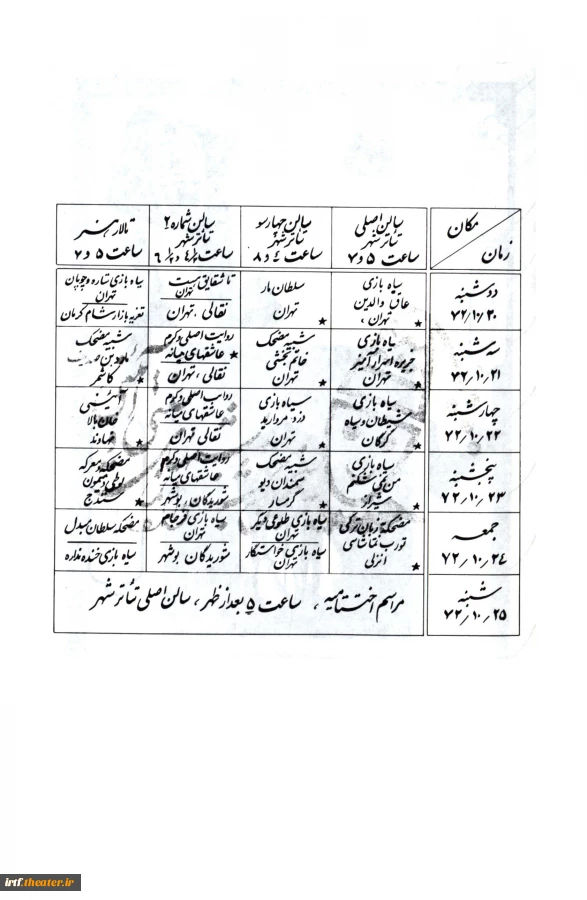 مکان
زمان
سالن اصلی
تئاتر شهر
ساعت ۵ و ۷
سالن چهارسو
تئاتر شهر
ساعت ٤ و ۸
سالن شماره ۲
تئاتر شهر
ساعت
تالار هنر
ساعت ۵ و ۷
دوشنبه
۷۲/۱۰/۲۰
سیاه بازی
عاق والدین
تهران
سلطان مار
تهران
تا شقایق هست
تهران
نقالی ، تهران
سیاه بازی ستاره و چوپان
تهران
تعزیه بازار شام کرمان
سه شنبه
۷۲،۱۰،۲۱
سیاه بازی
جزیره اسرارآمیز
تهران
شبیه مضحک
خاتم بخشی
تهران
روایت اصلی و کرم
عاشقهای میانه
نقالی ، تهران
شبیه مضحک
کاشمر
چهارشنبه
۷۲،۱۰،۲۲
سیاه بازی
شیطان و سیاه
گرگان
سیاه بازی
دزد مروارید
تهران
روایت اصلی و کرم
عاشقهای میانه
نقالی تهران
آئینی
خان بالا
نهاوند
پنجشنبه
۷۲،۱۰،۲۳
سیاه بازی
شیراز
شبیه مضحک
سمندان دیو
گرمسار
روایت اصلی و کرم
عاشقهای میانه
شوریدگان ، بوشهر
مضحکه و معرکه
لوطی و میمون
سنندج
جمعه
۷۲،۱۰،۲٤
مضحکه زبان ترکی
انزلی
سیاه بازی
تهران
سیاه بازی خواستگار
تهران
سیاه بازی
تهران
شوریدگان بوشهر
مضحکه سلطان مبدل
سیاه بازی خنده نداره
شنبه
۷۲،۱۰،۲۵
مراسم اختتامیه ، ساعت ۵ بعد از ظهر ، سالن اصلی تئاتر شهر
irtf.theater.ir